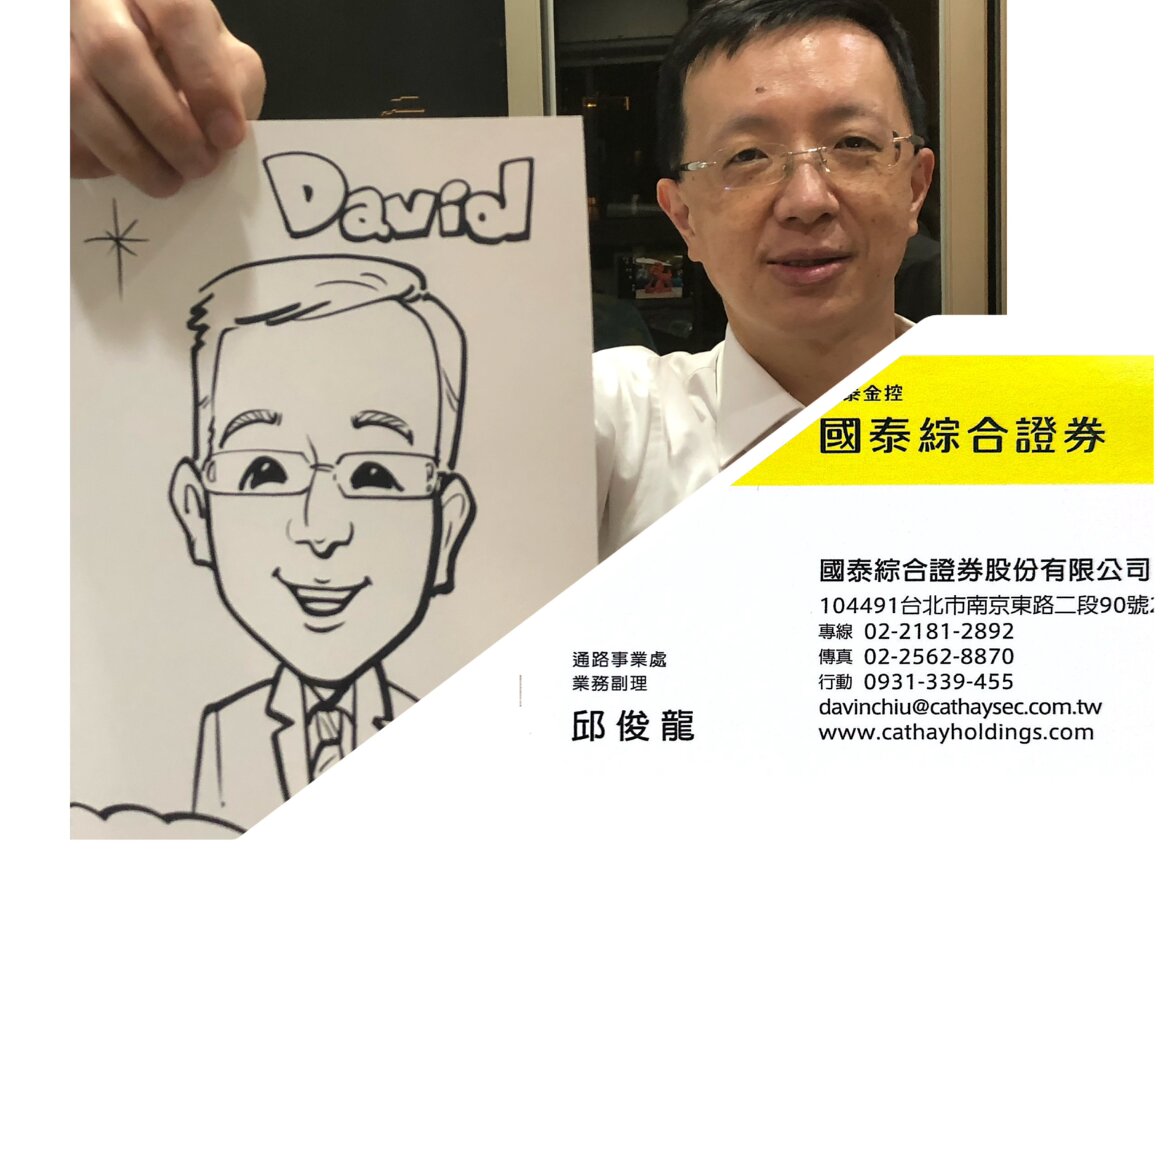 David
泰金控
國泰綜合證券
國泰綜合證券股份有限公司
104491台北市南京東路二段90號
專線 02-2181-2892
傳真 02-2562-8870
行動 0931-339-455
davinchiu@cathaysec.com.tw
www.cathayholdings.com
通路事業處
業務副理
邱俊龍